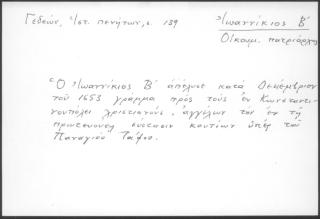 Γεδεών, Ἱστ. πενήτων, σ. 139
Ἰωαννίκιος Β΄
Οἰκουμ. πατριάρχης
Ὁ Ἰωαννίκιος Β΄ ἀπέλυσε κατά Δεκέμβριον
τοῦ 1653 γράμμα πρός τούς ἐν Κωνσταντι-
νουπόλει χριστιανούς, ἀγγέλων τήν ἐν τῇ
πρωτευούσῃ σύστασιν κουτίων ὑπέρ τοῦ
Παναγίου Τάφου.